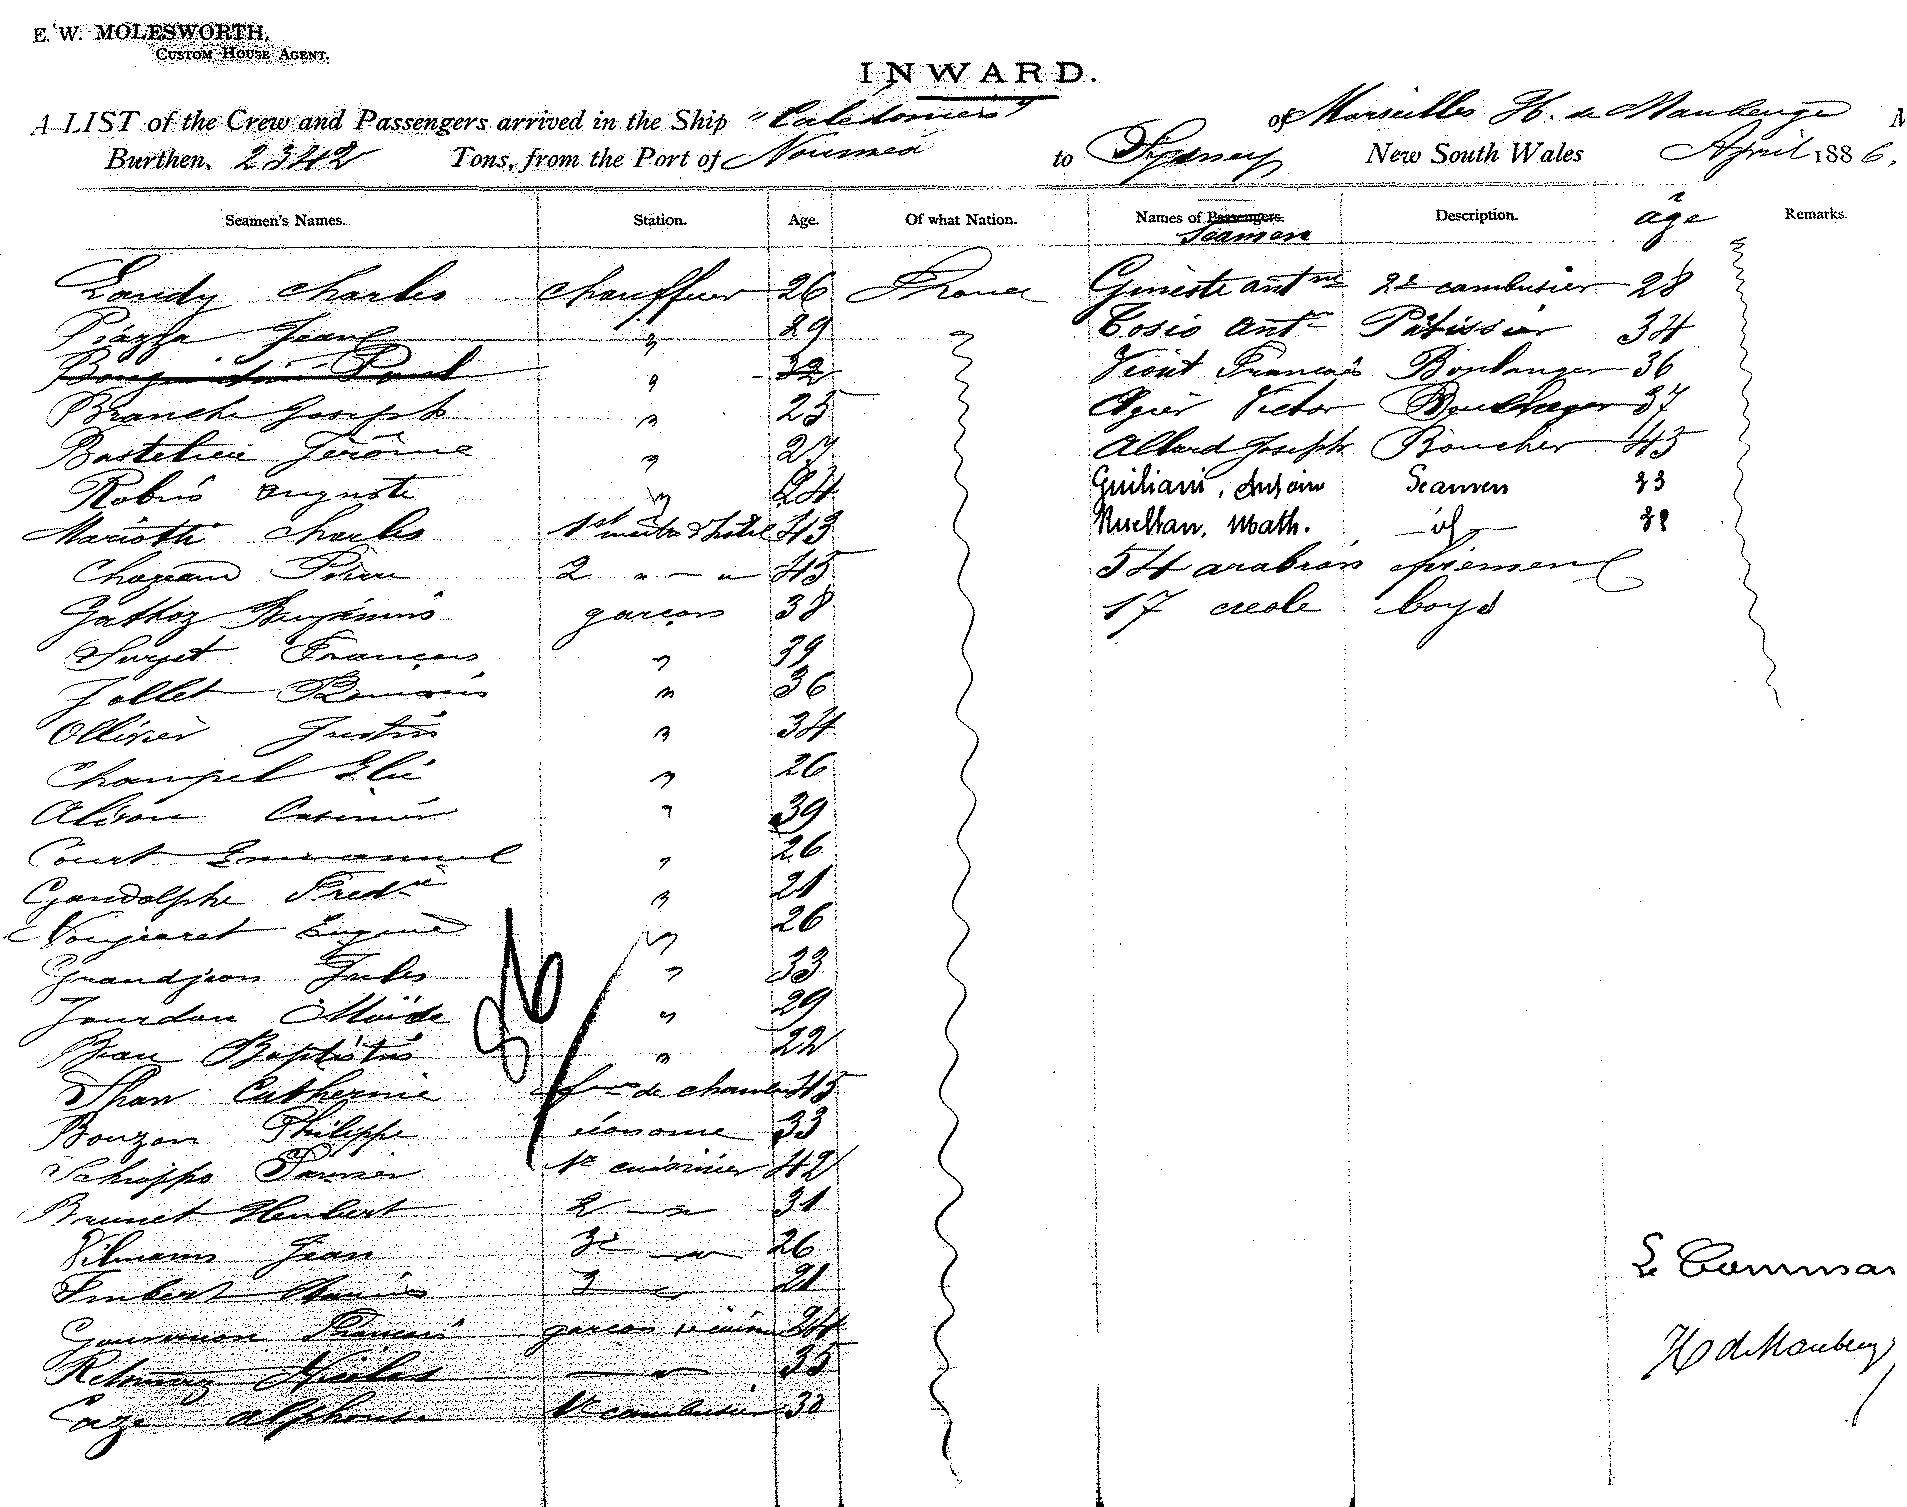 E. W. MOLESWORTH,
CUSTOM HOUSE AGENT.
INWARD.
A LIST of the Crew and Passengers arrived in the Ship "Calédonien" of Marseilles H. de Maubeuge M
Burthen, 2342 Tons, from the Port of Noumea to Sydney New South Wales April 1886,
Seamen's Names. Station. Age. Of what Nation. Names of Passengers. Seamen Description. âge Remarks.
Landy Charles chauffeur 26 France Gineste 2e cambusier 28
Piazza Jean " 29 Cosio Ant Pâtissier 34
Paul " 32 Viout Francois Boulanger 36
Branche Joseph " 25 Agier Victor Boulanger 37
Jérôme " 27 Allard Joseph Boucher 45
Robin Auguste " 24 Giuliani, Seamen 33
Mariotti Charles 1st maitre d'hôtel 43 Math. - id -
2 " - " 45 54 arabian firemen
Gattoz Benjamin garcon 38 17 creole boys
Francois " 39
Jollet Romain " 36
Ollivier Justin " 34
Champel Elie " 26
Casimir " 39
Court Emmanuel " 26
Gandolphe Fred " 21
Eugene " 26
Grandjean Jules " 33
Jourdan " 29
Beau Baptistin " 22
Catherine de chambre 45
Bouzon Philippe économe 33
1e cuisinier 42
Brunet 2 " 31
Jean 3e " 26
Imbert 3 " 21
Francois garcon 24
Nicolas " 35
Caze Alphonse 1e cambusier 30
86
Le Comman
H de Maubeuge